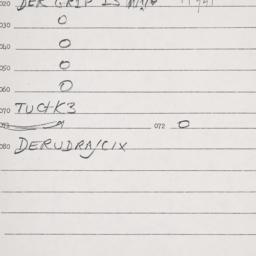 020 DER GRIP IS
030 O
040 O
050 O
060 O
070 TUCHK3
072 O
080 DERUDRAJCIX